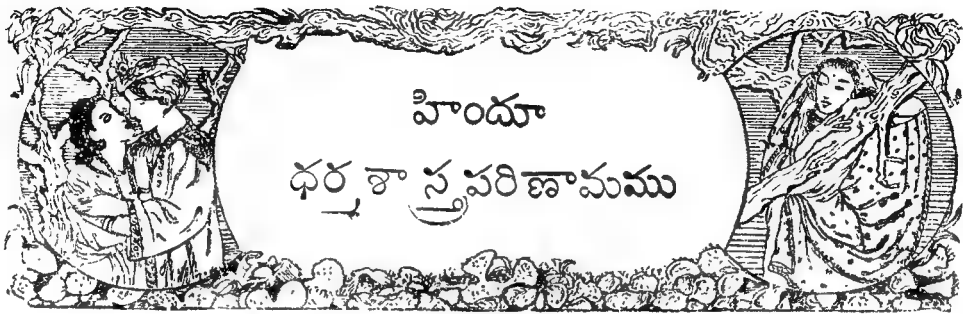 హిందూ
ధర్మశాస్త్రపరిణామము